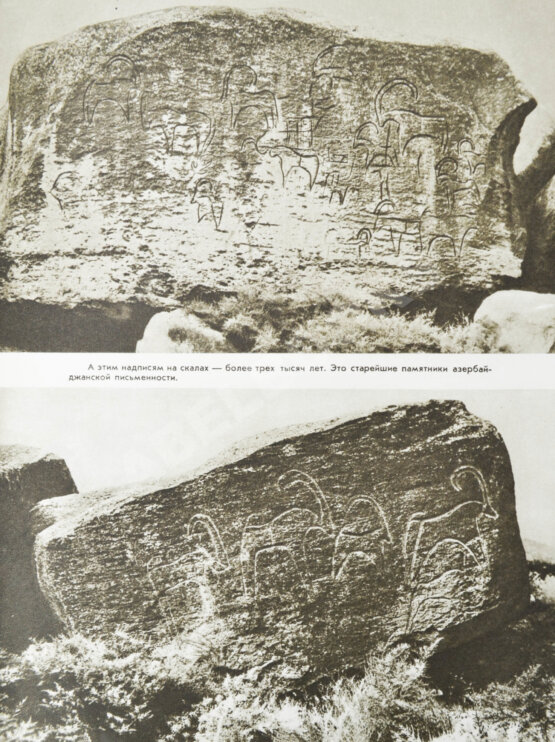 А этим надписям на скалах — более трех тысяч лет. Это старейшие памятники азербай-
джанской письменности.